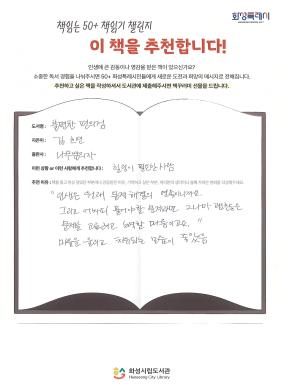 책읽는 50+ 책읽기 챌린지
화성특례시
이 책을 추천합니다!
인생에 큰 감동이나 영감을 받은 책이 있으신가요?
소중한 독서 경험을 나눠주시면 50+ 화성특례시민들에게 새로운 도전과 희망의 메시지로 전해집니다.
추천하고 싶은 책을 작성하셔서 도서관에 제출해주시면 책꾸러미 선물을 드립니다.
도서명: 불편한 편의점
지은이: 김호연
출판사: 나무옆의자
이런 상황 or 이런 사람에게 추천합니다: 힐링이 필요한 사람
추천 이유
"인생은 원래 문제 해결의 연속이니까요
그리고 어차피 풀어야할 문제라면 그나마 괜찮은
문제를 고르려고 노력할 따름이고요."
마음을 울리고 치유되는 마음이 좋았음
화성시립도서관
Hwaseong City Library